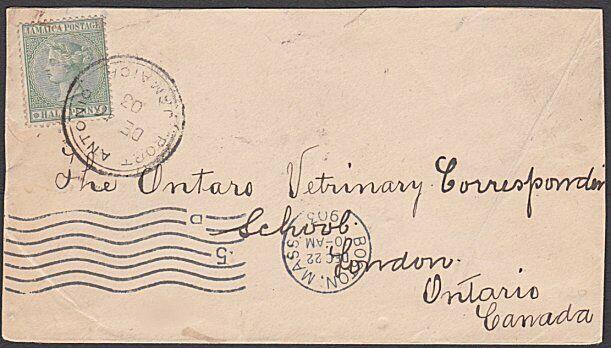 JAMAICA POSTAGE
HALF PENNY
PORT ANTONIO
JAMAICA
DE
03
The Ontaro Vetrinary Corresponden
School
London.
Ontario
Canada
BOSTON, MASS
DEC 22
10-AM
1903
D
5